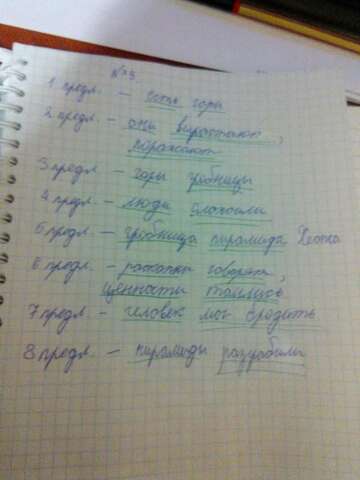 №3.
1 предл. – есть горы
2 предл. – они вырастают,
поражают
3 предл. – горы гробницы
4 предл. – люди сложили
5 предл. – гробница пирамида Хеопса
6 предл. – говорят,
ценности таились
7 предл. – человек мог бродить
8 предл. – пирамиды разграбили